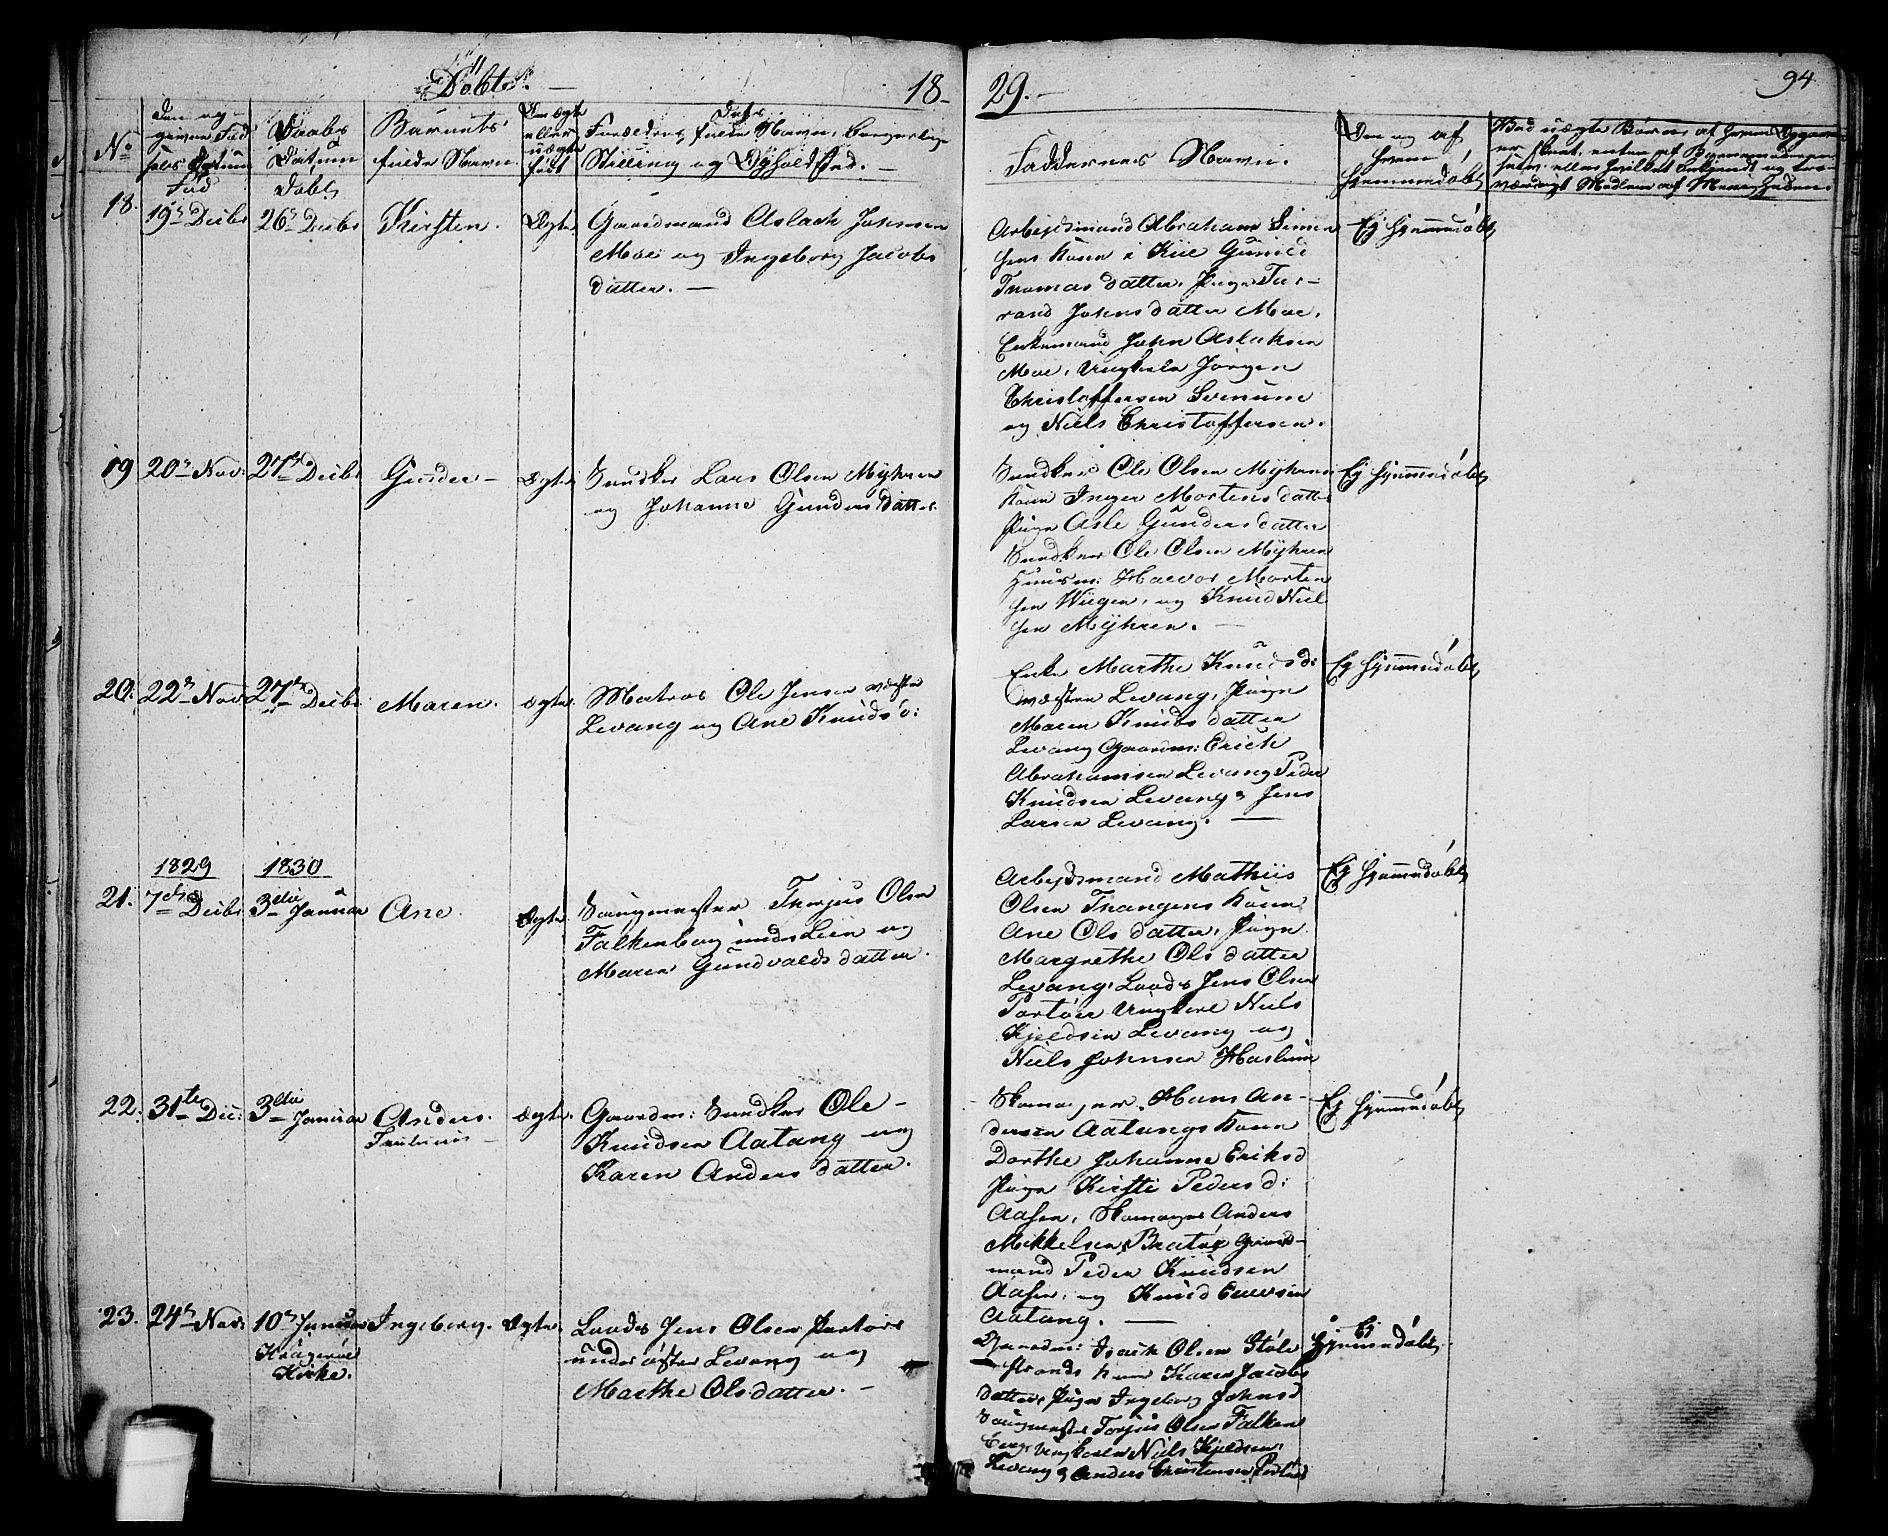 Döbte.
18
29.
94
No
Döbt
Barnets
fulde Navn.
Ægte
eller
uægte
född
Forældres fulde Navn, Borgerlig
Stilling og Opholdsted.
Faddernes Navn.
Om og af
hvem
hjemmedöbt
18.
19de Decbr
26de Decbr
Kirsten.
Ægte
Gaardmand Aslack Johnsen
Moe og Ingeborg Jacobs
datter.
Arbejdsmand Abraham Simen
sens Kone i Kiil Gunild
Thomasdatter, Pige Tu-
rand Johnsdatter Moe,
Enkemand John Aslaksen
Moe, Ungkarle Jörgen
Christoffersen Svenum
og Niels Christoffersen.
Ej hjemmedöbt
19
20de Nov:
27de Decbr
Gunder
Ægte
Snedker Lars Olsen Myhren
og Johanne Gundersdatter
Snedker Ole Olsen Myhrens
Kone Inger Mortensdatter
Pige Asle Gundersdatter
Snedker Ole Olsen Myhren
Huusm: Halvor Morten
sen Wiigen, og Knud Niel
sen Myhren.
Ej hjemmedöbt
20.
22de Nov
27de Decbr
Maren.
Ægte
Matros Ole Jensen vestre
Levang og Ane Knudsd:
Enke Marthe Knudsd:
vestre Levang, Pige
Maren Knudsdatter
Levang Gaardm: Erich
Abrahamsen Levang Peder
Knudsen Levang & Jens
Larsen Levang.
Ej hjemmedöbt
1829
1830
21.
7de Decbr
3die Januar
Ane.
Ægte
Saugmester Thorjus Olsen
Falkenberg under Lien og
Maren Gundvaldsdatter.
Arbejdsmand Mathiis
Olsen Thangens Kone
Ane Olsdatter, Pige
Margrethe Olsdatter
Levang, Lods Jens Olsen
Portöer Ungkarl Niels
Kjeldsen Levang og
Niels Johnsen Haslum
Ej hjemmedöbt
22.
31te Dec:
3die Januar
Anders
Ægte
Gaardm: Snedker Ole
Knudsen Aatang og
Karen Andersdatter.
Skomager Hans An-
dersen Aatangs Kone
Dorthe Johanne Eriksd
Pige Kirsti Pedersd:
Aasen, Skomager Anders
Mikkelsen Bratöe Gaard-
mand Peder Knudsen
Aasen, og Knud
Aatang.
Ej hjemmedöbt
23.
24de Nov:
10de Januar
Kragerøe
Kirke.
Ingeborg.
Ægte
Lods Jens Olsen Portöer
under öster Levang og
Marthe Olsdatter.
Gaardm: Isack Olsen Stöle
strands Kone Karen Jacobs
datter, Pige Ingeborg Johnsd
Saugmester Torjus Olsen Falken
berg Ungkarle Niels Kjeldsen
Levang & Anders Christensen Portöer
Ej
hjemmedöbt